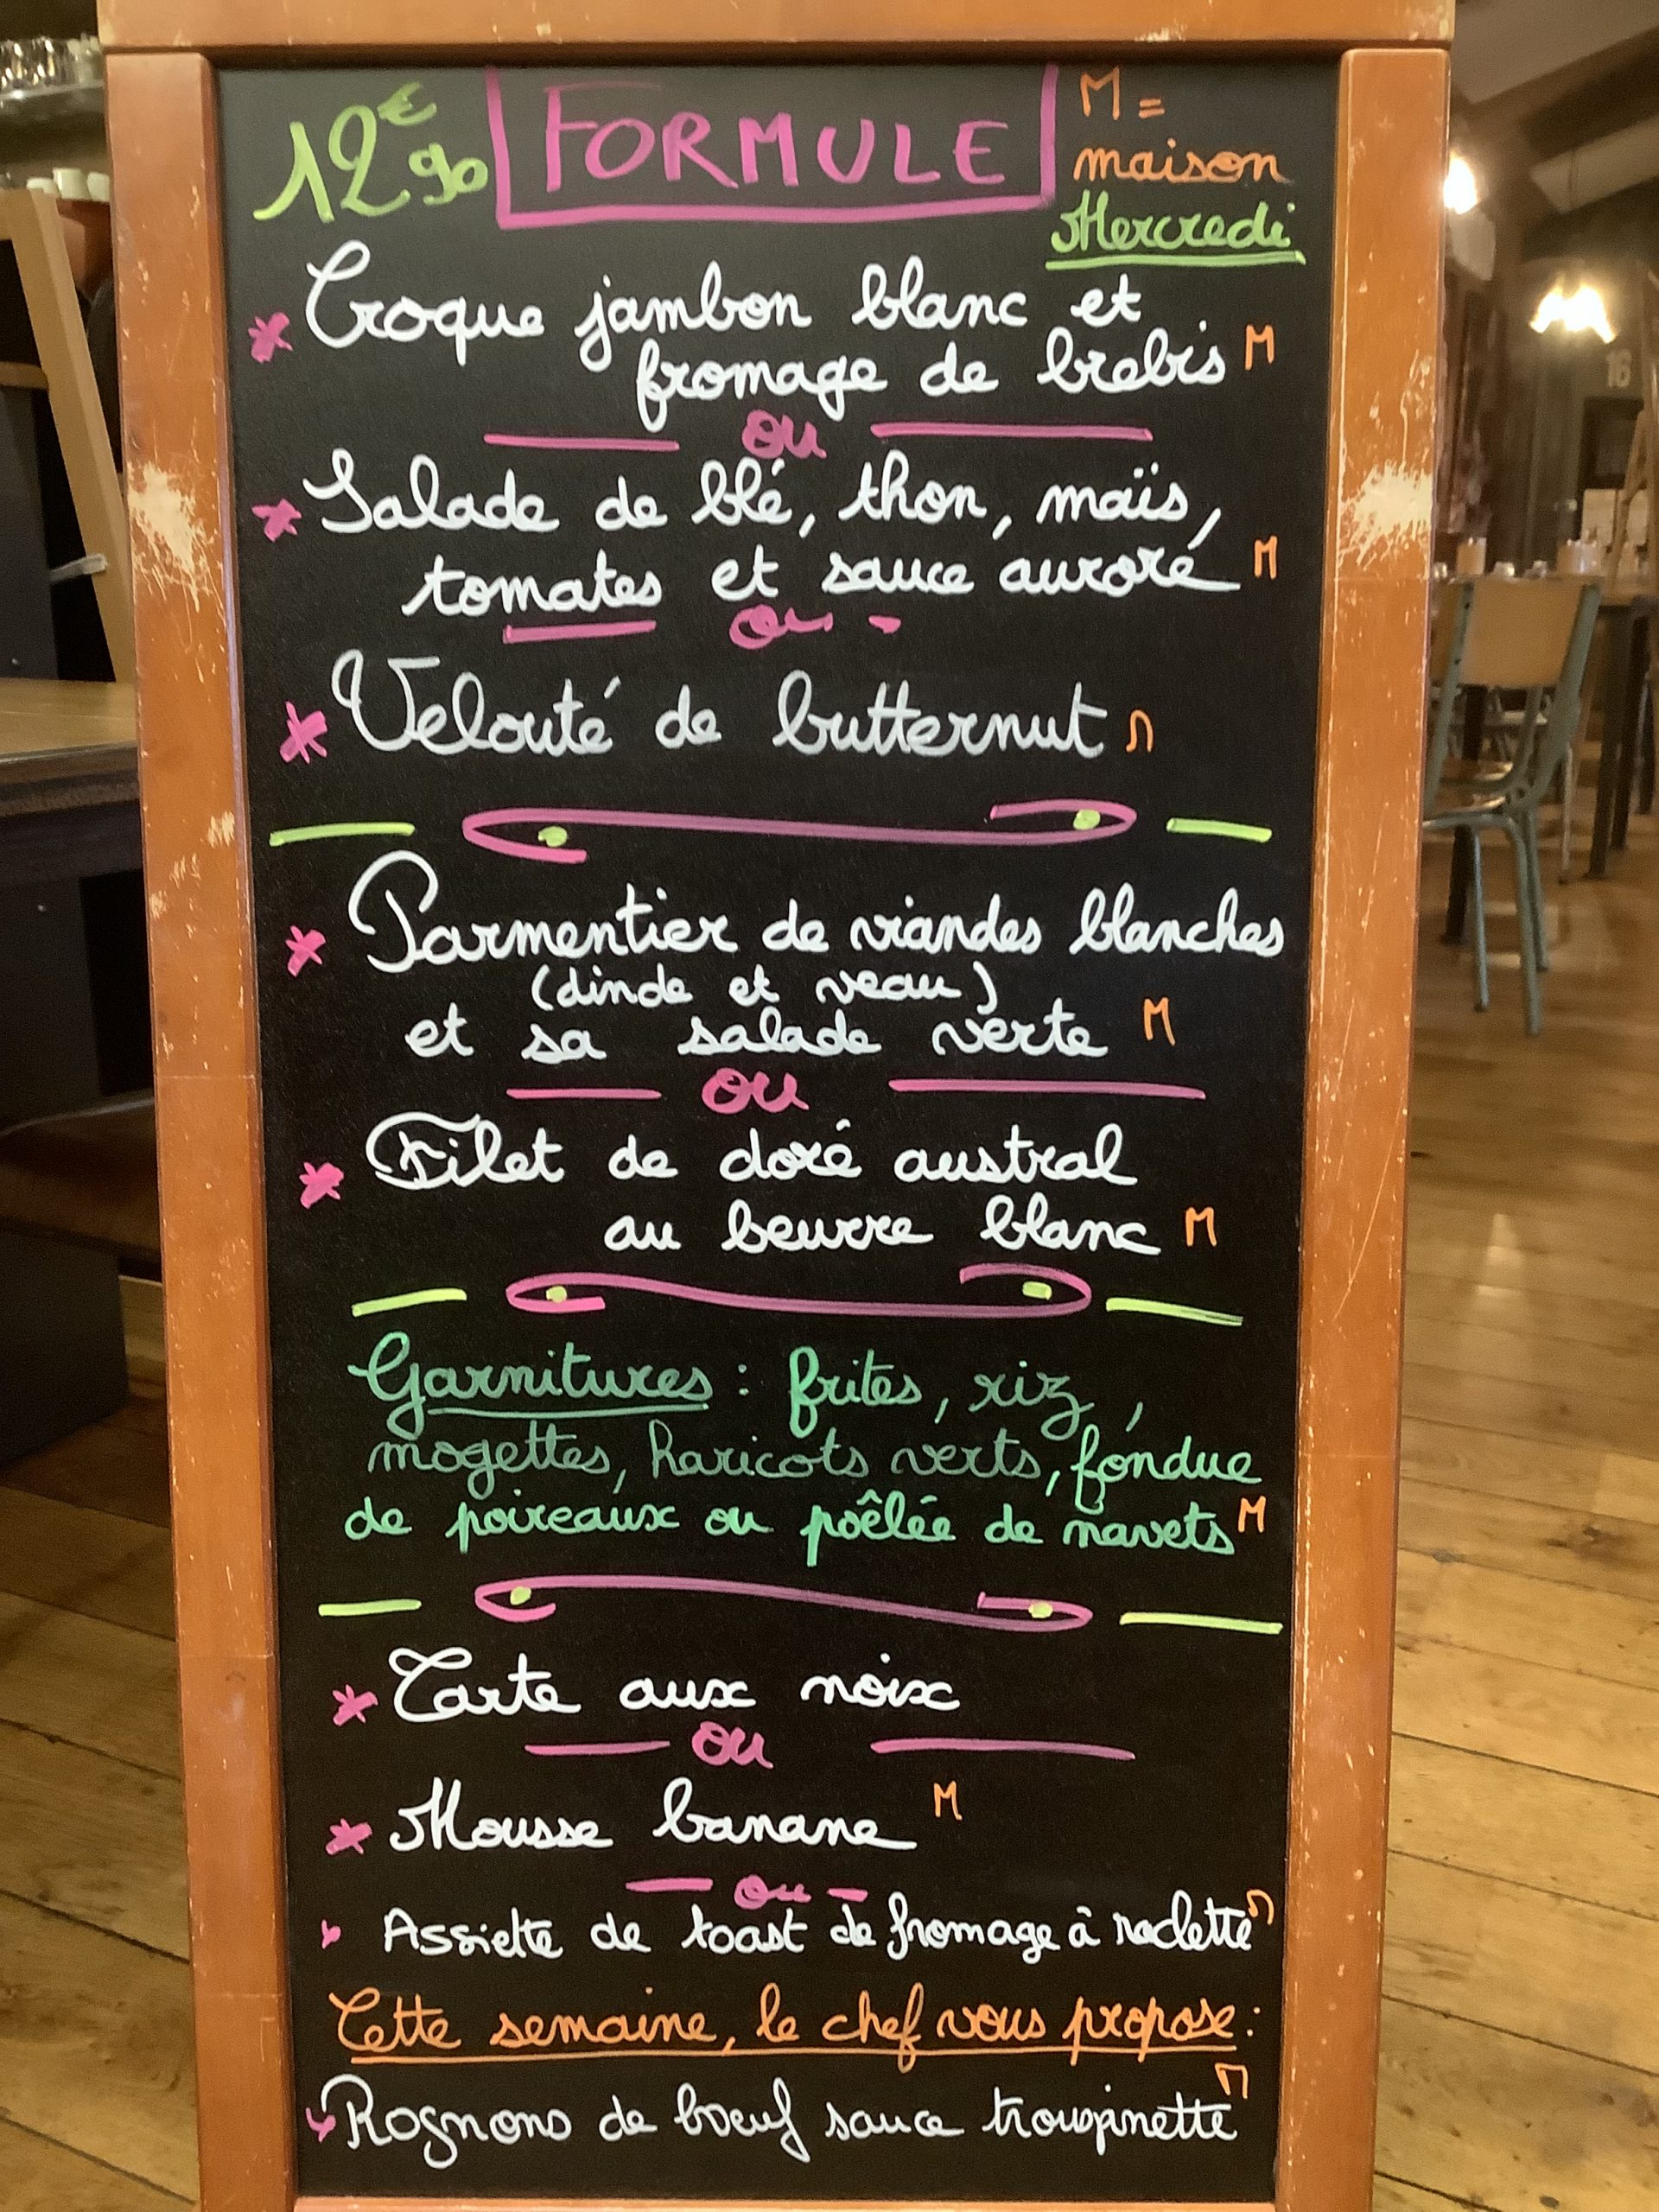 12€90 FORMULE M =
maison
Mercredi
Croque jambon blanc et
fromage de brebis M
ou
Salade de blé, thon, maïs,
tomates et sauce aurore M
ou
Velouté de butternut M
Parmentier de viandes blanches
(dinde et veau)
et sa salade verte M
ou
Filet de doré austral
au beurre blanc M
Garnitures : frites, riz,
mogettes, haricots verts, fondue
de poireaux ou poêlée de navets M
Tarte aux noix
ou
Mousse banane M
ou
Assiette de toast de fromage à raclette M
Cette semaine, le chef vous propose :
Rognons de boeuf sauce trouspinette M
16